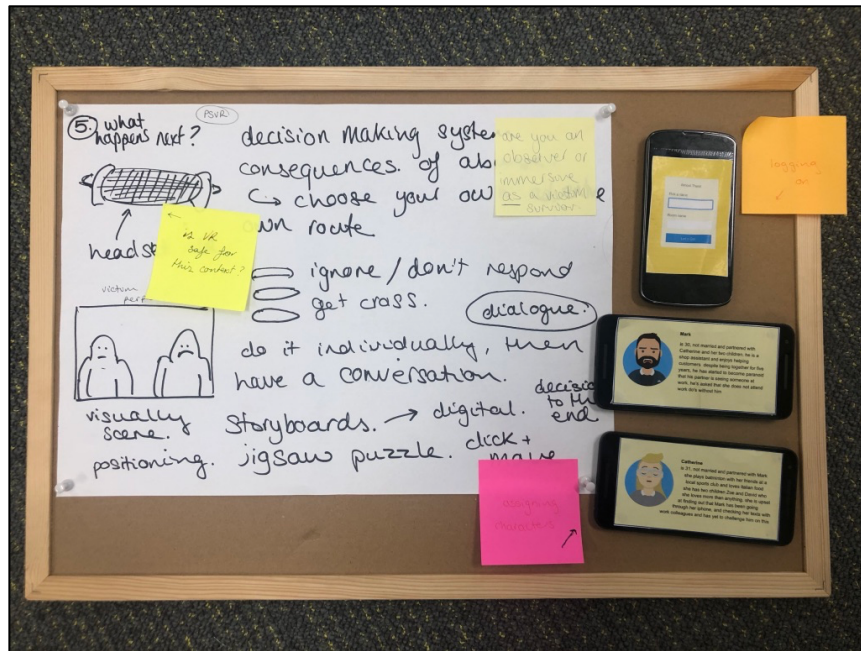 5. what
happens next?
PSVR
headse
decision making syste
consequences. of ab
↳ choose your ow
own route
are you an
observer or
immersive
as a victim
survivor.
is VR
safe for
this context?
victim
ignore / don't respond
get crass.
dialogue.
do it individually, then
have a conversation.
decisio
to the
end
visually
scene.
positioning.
storyboards. → digital.
jigsaw puzzle.
click +
move
assigning
characters
logging
on
Mark
is 30, not married and partnered with
Catherine and her two children, he is a
shop assistant and enjoys helping
customers, despite being together for five
years, he has started to become paranoid
that his partner is seeing someone at
work, he's asked that she does not attend
work do's without him
Catherine
is 31, not married and partnered with Mark
she plays badminton with her friends at a
local sports club and loves Italian food
she has two children Zoe and David who
she loves more than anything, she is upset
at finding out that Mark has been going
through her iphone, and checking her texts with
work colleagues and has yet to challenge him on this